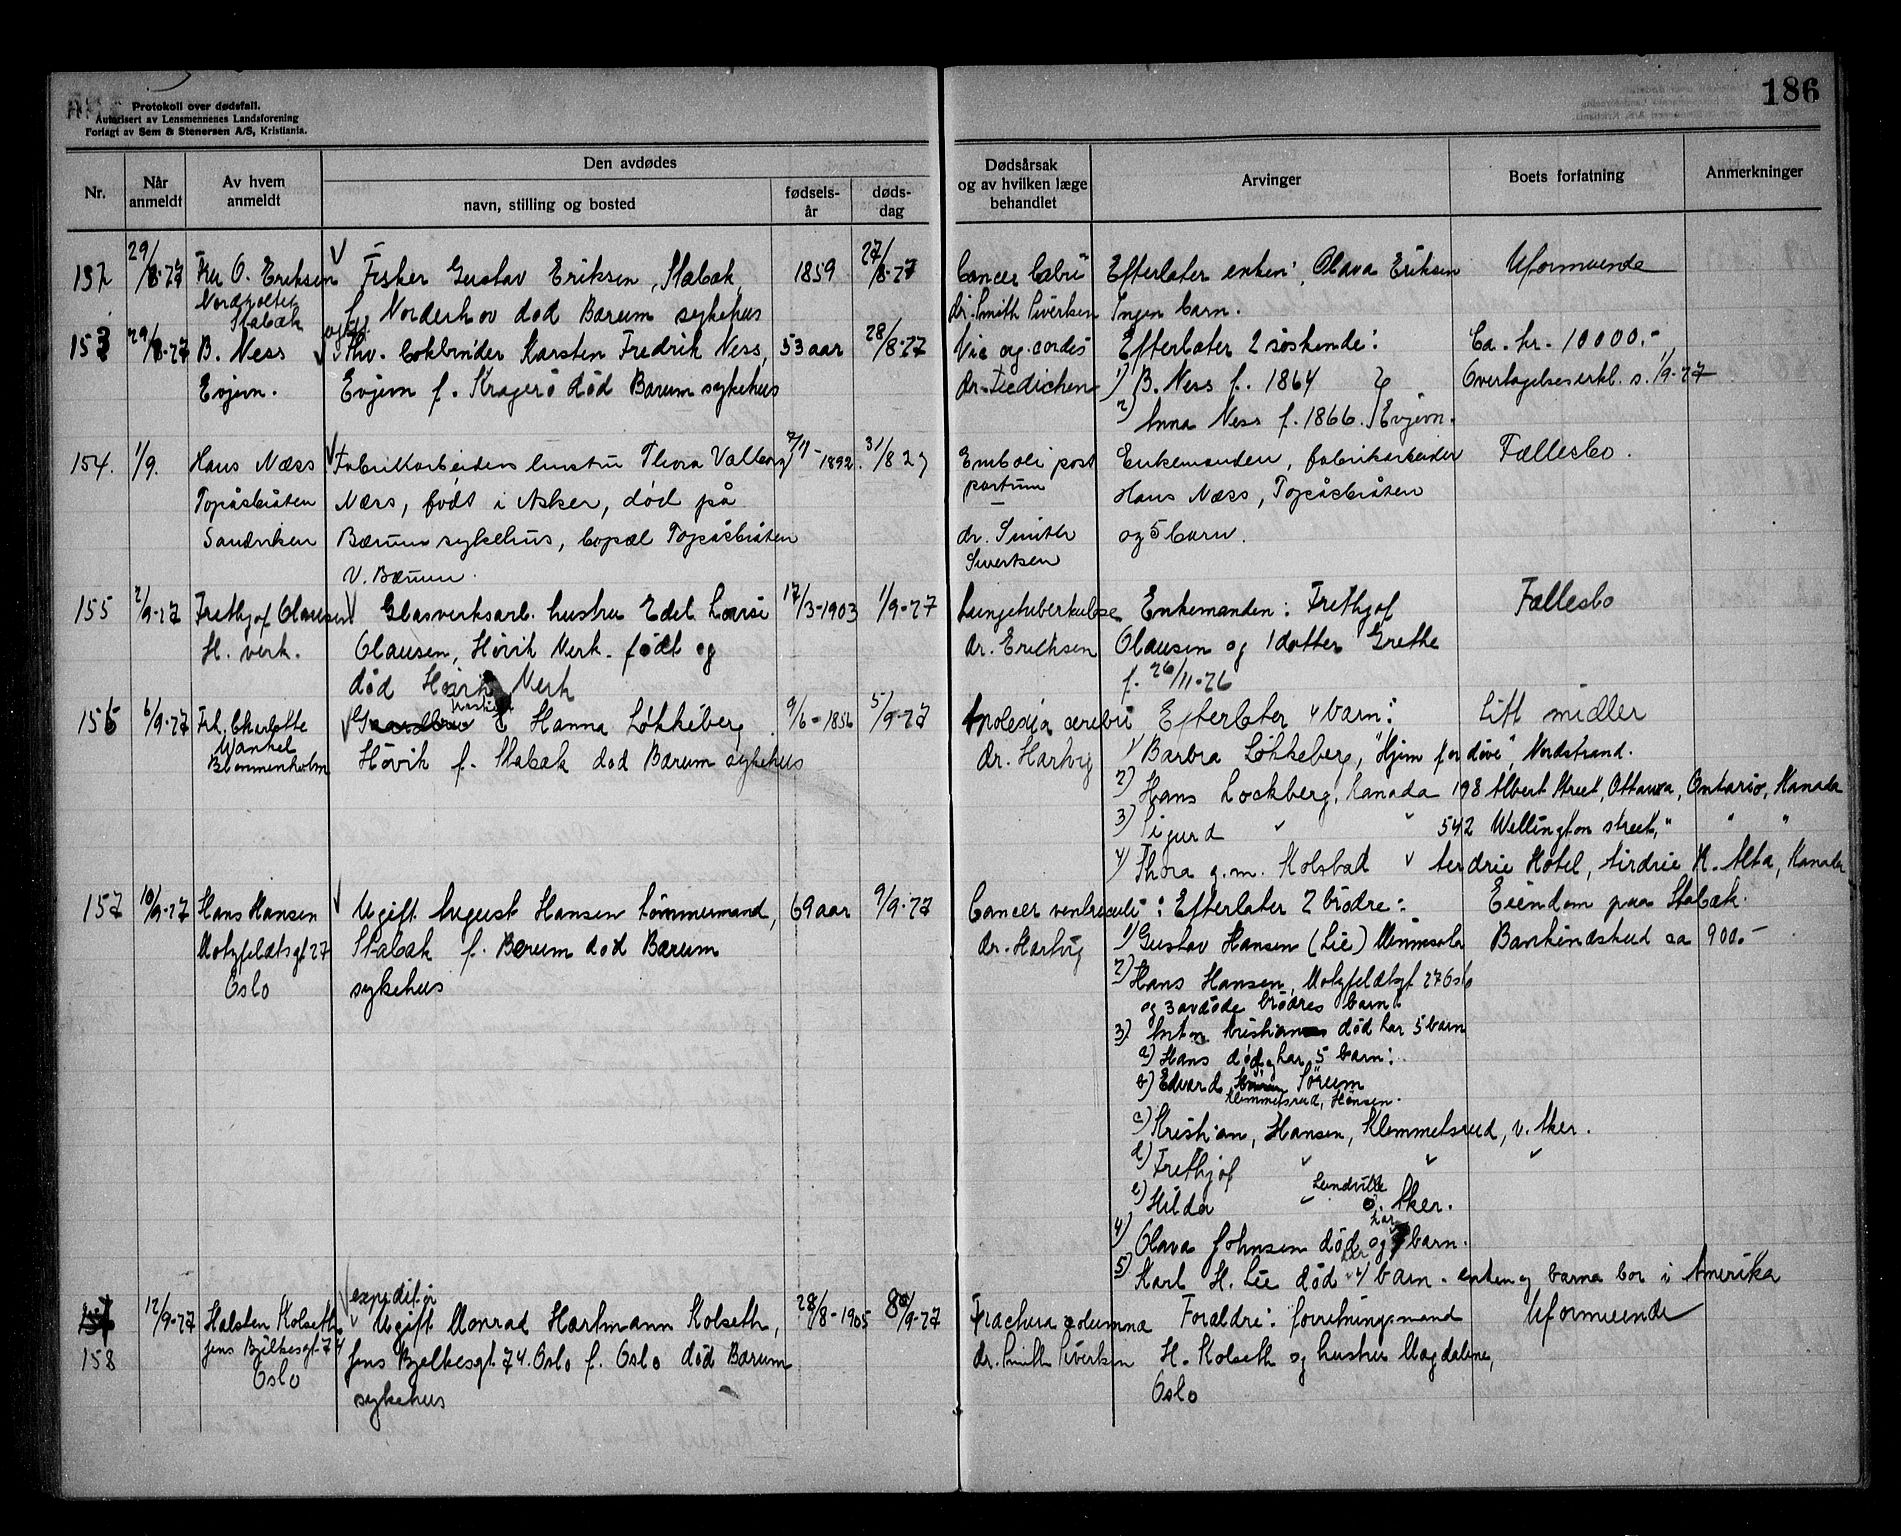 186
Protokoll over dødsfall.
Autorisert av Lensmennenes Landsforening
Forlagt av Sem & Stenersen A/S, Kristiania.
Nr.
Når anmeldt
Av hvem anmeldt
Den avdødes
navn, stilling og bosted
fødsels-år
døds-dag
Dødsårsak og av hvilken læge behandlet
Arvinger
Boets forfatning
Anmerkninger
152 29/8-27 Fru O. Eriksen Fisker Gustav Eriksen, Stabæk, 1859 27/8-27 Cancer Efterlater enken: Olava Eriksen Uformuende
Stabæk f. Norderhov død Bærum sykehus dr. Smith Sivertsen Ingen barn.
153 29/8-27 B. Ness Karsten Fredrik Ness, 53 aar 28/8-27 Vic org. cordis Efterlater 2 søskende: Ca. kr. 10000.-
Evjevn. Evjevn f. Kragerø død Bærum sykehus dr. 1) B. Ness f. 1864 Overtagelseserkl. s. 1/9-27
2) Anna Ness f. 1866. Evjevn.
154. 1/9. Hans Næss Fabrikkarbeiders hustru Thora Valborg 1892. 31/8 27 Emboli post Enkemanden, fabrikarbeider Fællesbo.
Topåsbråten Næss, født i Asker, død på partum Hans Næss, Topåsbråten
Sandviken Bærum sykehus, bopæl Topåsbråten dr. Smith og 5 barn.
V. Bærum. Sivertsen
155 2/9-27 Frethjof Olausen Glasverksarb. hustru Edel Lovise 17/3-1903 1/9-27 Lungetuberkulose Enkemanden: Frethjof Fællesbo
H. verk. Olausen, Høvik Verk. født og dr. Ericksen Olausen og 1 datter Grethe
død Høvik Verk f. 26/11-26
156 6/9-27 Frk. Charlotte Hanna Løkkeberg 9/6-1856 5/9-27 Apolexia cerebri Efterlater 4 barn: Litt midler
Wankel Høvik f. Stabæk død Bærum sykehus dr. Hartvig 1) Barbra Løkkeberg, "Hjem for døve", Nordstrand.
Blommenholm 2) Hans Lockberg, Kanada 198 Albert Street, Ottawa, Ontario, Kanada
3) Sigurd " " 542 Wellington street, " " "
4) Thora g.m. Kolstad " Hotel, Airdrie Alta, Kanada
157 10/9-27 Hans Hansen Ugift August Hansen tømmermand, 69 aar 9/9-27 Cancer ventriculi: Efterlater 2 brødre: Eiendom paa Stabæk.
Motzfeldtsgt 27 Stabæk f. Bærum død Bærum dr. Hartvig 1) Gustav Hansen (Lie) Bankindskud ca 900.-
Oslo sykehus 2) Hans Hansen, Motzfeldtsgt 27 Oslo
og 3 avdøde brødres barn:
3) Anton Kristian død har 5 barn
a) Hans død og har 5 barn:
b) Edvard Sørum
Klemmetsrud, Hansen.
c) Kristian, Hansen, Klemmetsrud, v. Aker.
d) Frethjof " " "
e) Hilda " Lundville ø. Aker.
4) Olava Johnsen død har barn.
5) Karl H. Lie død har 4 barn - enken og barna bor i Amerika
158 12/9-27 Halsten Kolseth expeditør Ugift Monrad Hartmann Kolseth, 28/8-1905 8/9-27 Fractura columna Foreldre: forretningsmand Uformuende
Jens Bjelkesgt 74 Jens Bjelkesgt 74. Oslo f. Oslo død Bærum dr. Smith Sivertsen H. Kolseth og hustru Magdalene,
Oslo sykehus Oslo